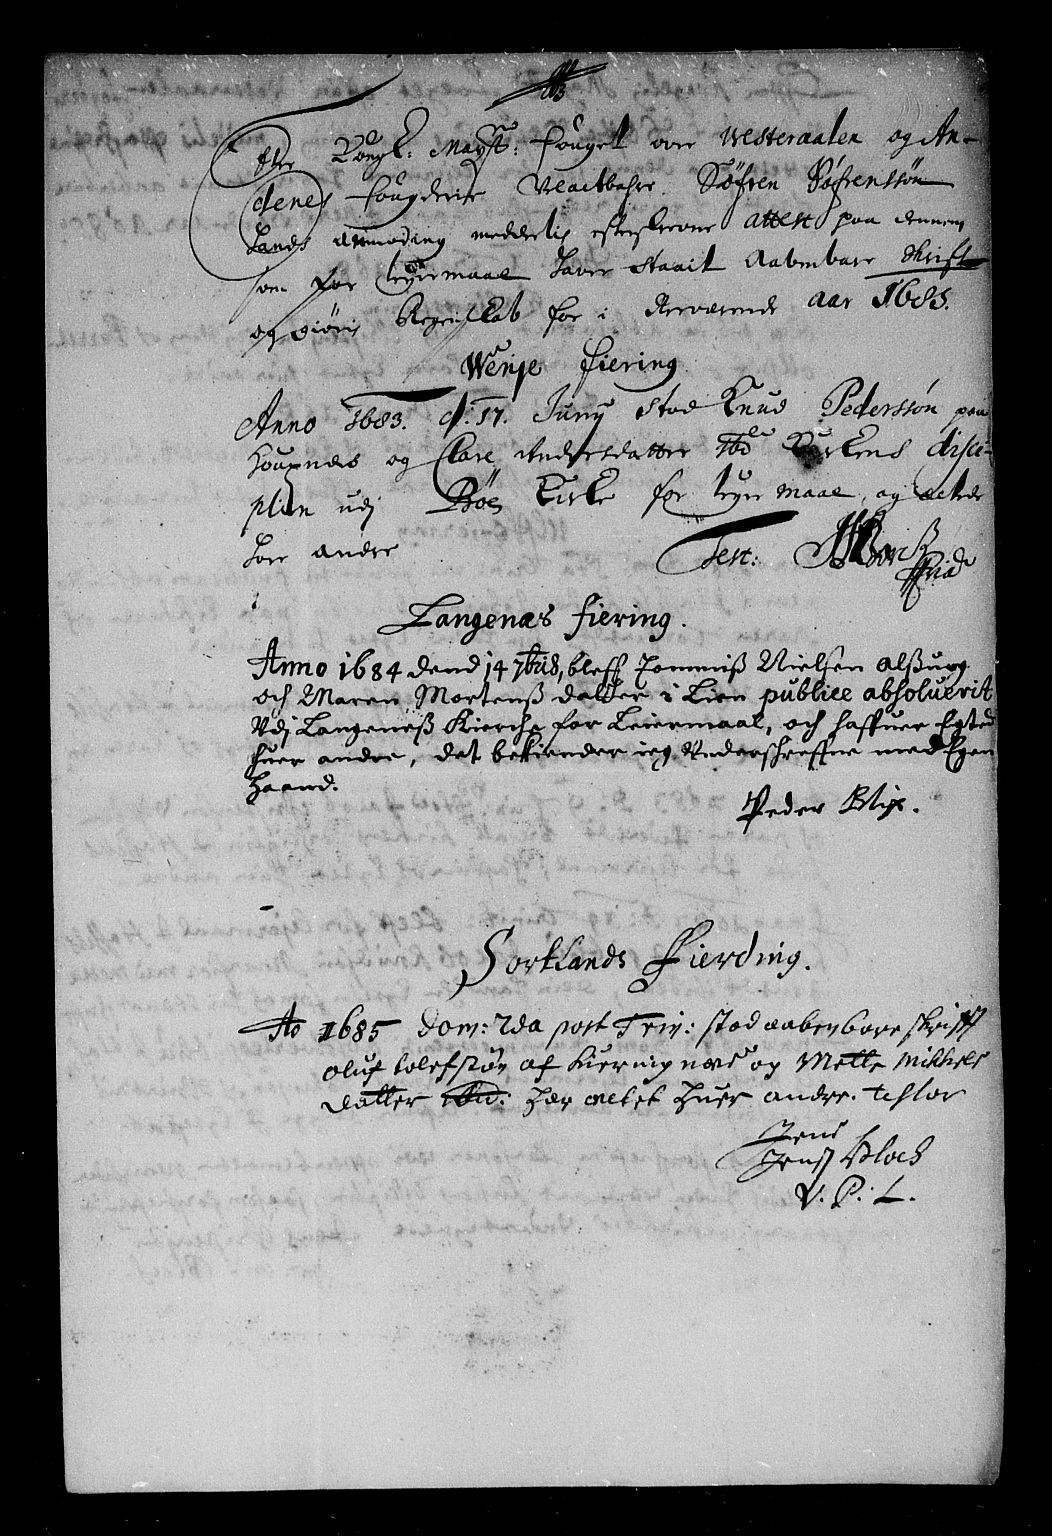 Efter Kongl: Maystz: fouget over Westeraalen og An-
denes fougderie Velactbahre Søfren Søfrenssøn
hands anmoding meddelis efterskrevne attest paa dennem
som for leyermaal haver staait Aabenbare skrift
og giøris Regenskab for i Nerværende aar 1685.
Wenje fiering
Anno 1683. d: 17. Juny stod Knud Pederssøn paa
og Clare Andersdatter ibd Kirkens disci-
plin udj Bøes Kirke for leyermaal, og ectede
hver andre
Test:
Langenæs fiering.
Anno 1684 dend 14 7bris, bleff Tommiß Nielsen
och Maren Mortenß datter i Lien publice absoluerit
Vdj Langeneß Kierche for Leiermaal, och haffuer Egted
huer andre, det bekiender ieg Underschreffne med Egen
Haand.
Peder Blix.
Sortlands Fierding.
Ao 1685 Dom: 2da post Trin: stod aabenbare skrifft
Oluf tolefsøn af Kierringnæs og Mette Mikkels
datter ibid: har ectet huer andre. testor
Jens
Jens Bloch
V. P: L.